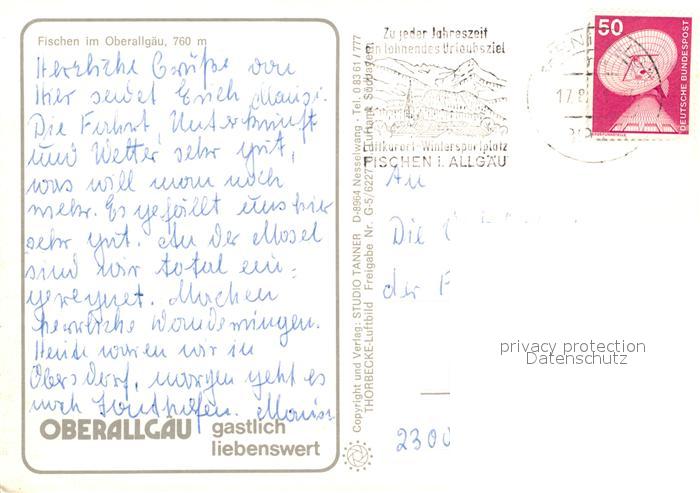 Fischen im Oberallgäu, 760 m
Herzliche Grüße von
hier sendet Euch Mausi.
Die Fahrt, Unterkunft
und Wetter sehr gut,
was will man noch
mehr. Es gefällt uns hier
sehr gut. An der Mosel
sind wir total ein=
geregnet. Machen
herrliche Wanderungen.
Heute waren wir in
Obersdorf, morgen geht es
nach Sonthofen.
OBERALLGÄU gastlich
liebenswert
Copyright und Verlag: STUDIO TANNER D-8964 Nesselwang · Tel. 0 83 61 / 777
THORBECKE-Luftbild Freigabe Nr. G-5/6227
Zu jeder Jahreszeit
ein lohnendes Urlaubsziel
Luftkurort-Wintersportplatz
FISCHEN i. ALLGÄU
17.8
50
DEUTSCHE BUNDESPOST
An
Die
der F
2300
privacy protection
Datenschutz